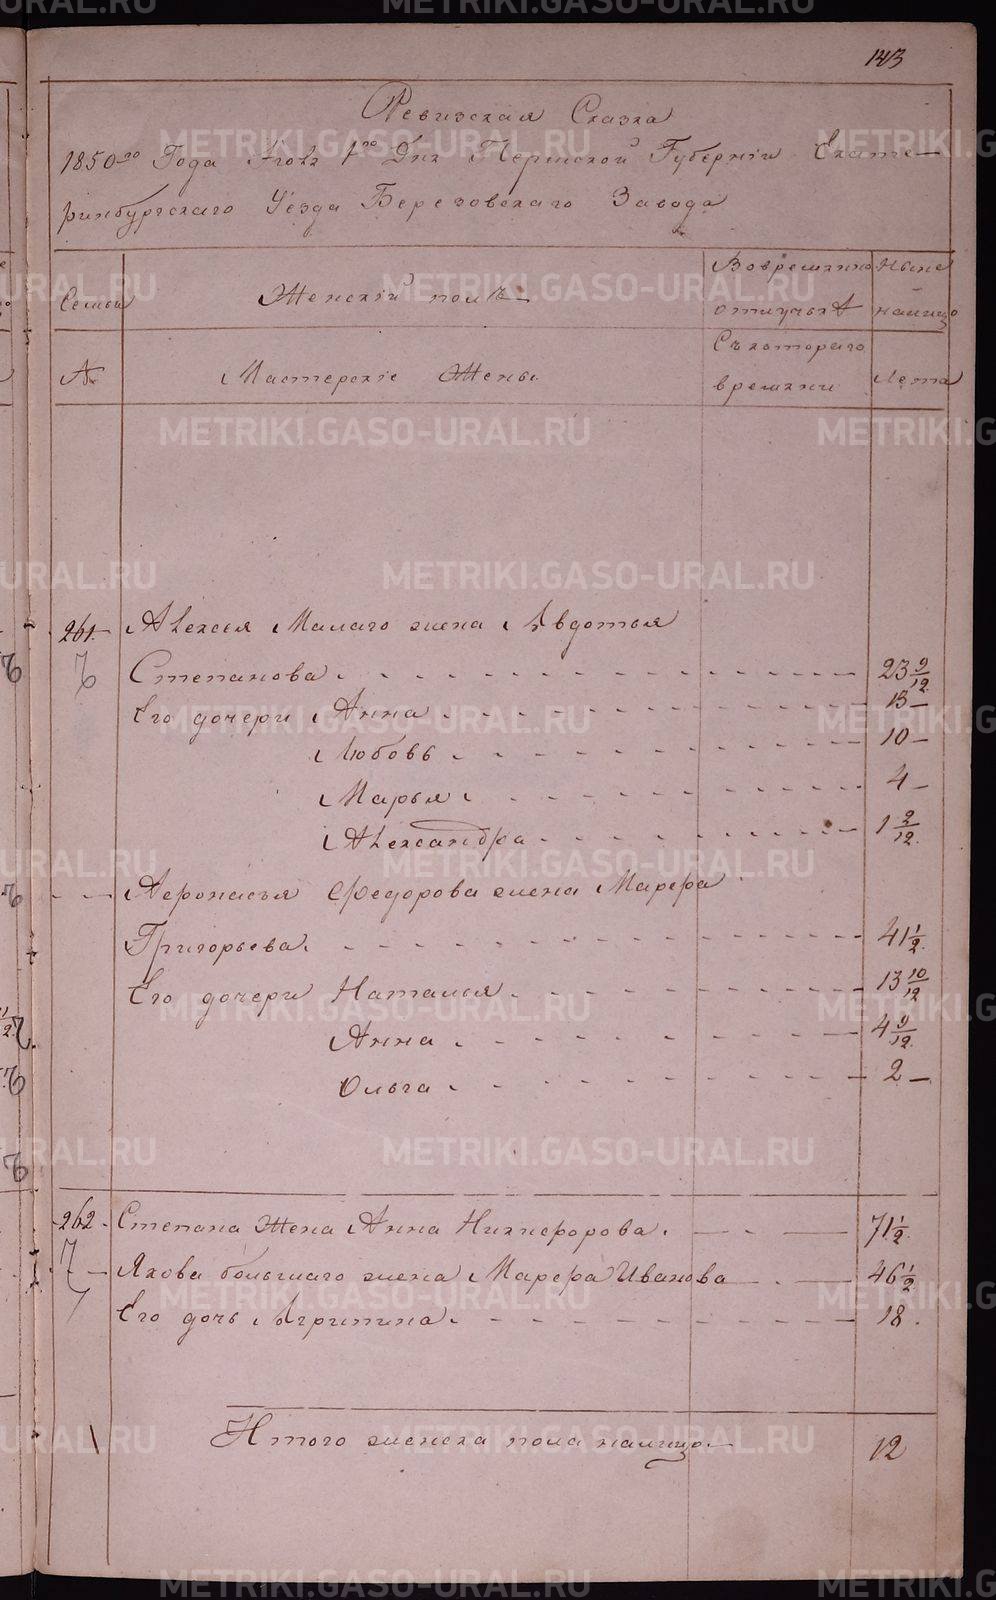 143
Ревизская Сказка
1850го Года Июля 1го Дня Пермской Губернiи Екате-
ринбургскаго Уезда Березовскаго Завода
Семьи
Женскiй полъ
Вовремянно отлучьке
Ныне налицо
№
Мастерскiе Жены.
Съ котораго времяни
Лета
261. Алексея Малаго жена Авдотья
6 Степанова 23 9/12
Его дочери Анна 13 -
Любовь 10 -
Марья 4 -
Александра 1 2/12.
Афонасья Федорова жена Марфа
Григорьева 41 1/2.
Его дочери Наталья 13 10/12
Анна 4 9/12.
Ольга 2 -
262. Степана Жена Анна Никифорова. 71 1/2.
Якова большаго жена Марфа Иванова 46 1/2
Его дочь Агрипина 18.
Итого женска пола налицо 12
METRIKI.GASO-URAL.RU